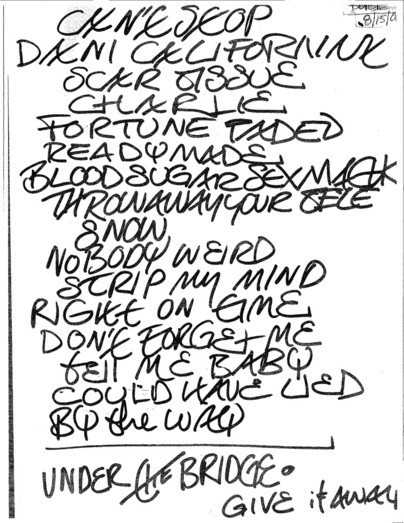 8/15/0
CAN'T STOP
DANI CALIFORNIA
SCAR TISSUE
CHARLIE
FORTUNE FADED
READYMADE
BLOODSUGARSEXMAGIK
THROWAWAYYOUR TELE
SNOW
NOBODY WEIRD
STRIP MY MIND
RIGHT ON TIME
DON'T FORGET ME
tell ME BABY
COULD HAVE LIED
BY the WAY
UNDER the BRIDGE.
GIVE it AWAY